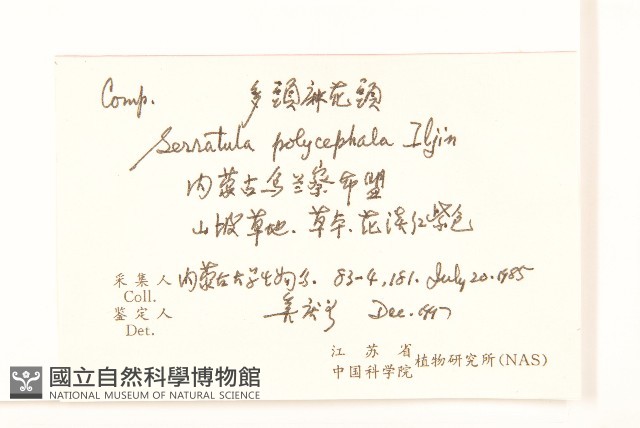 Comp. 多頭麻花頭
Serratula polycephala Iljin
内蒙古乌兰察布盟
山坡草地、草本、花淡红紫色
采集人 内蒙古大学生物系. 83-4,181. July 20. 1985
Coll.
鉴定人 Dec. 1997
Det.
江苏省
中国科学院 植物研究所(NAS)
國立自然科學博物館
NATIONAL MUSEUM OF NATURAL SCIENCE